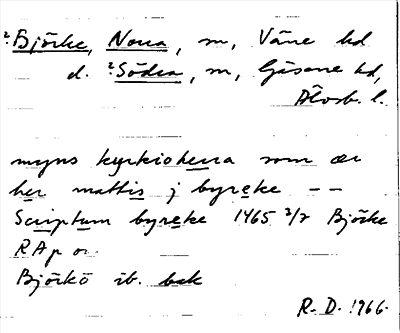 ²Björke, Norra, m, Väne hd
d. ²Södra, m, Gäsene hd,
Älvsb. l.
myns kyrkioherra som ær
her mattis j byreke --
Scriptum byreke 1465 3/2 Björke
RAp or.
Björkö ib. bak
R. D. 1966.